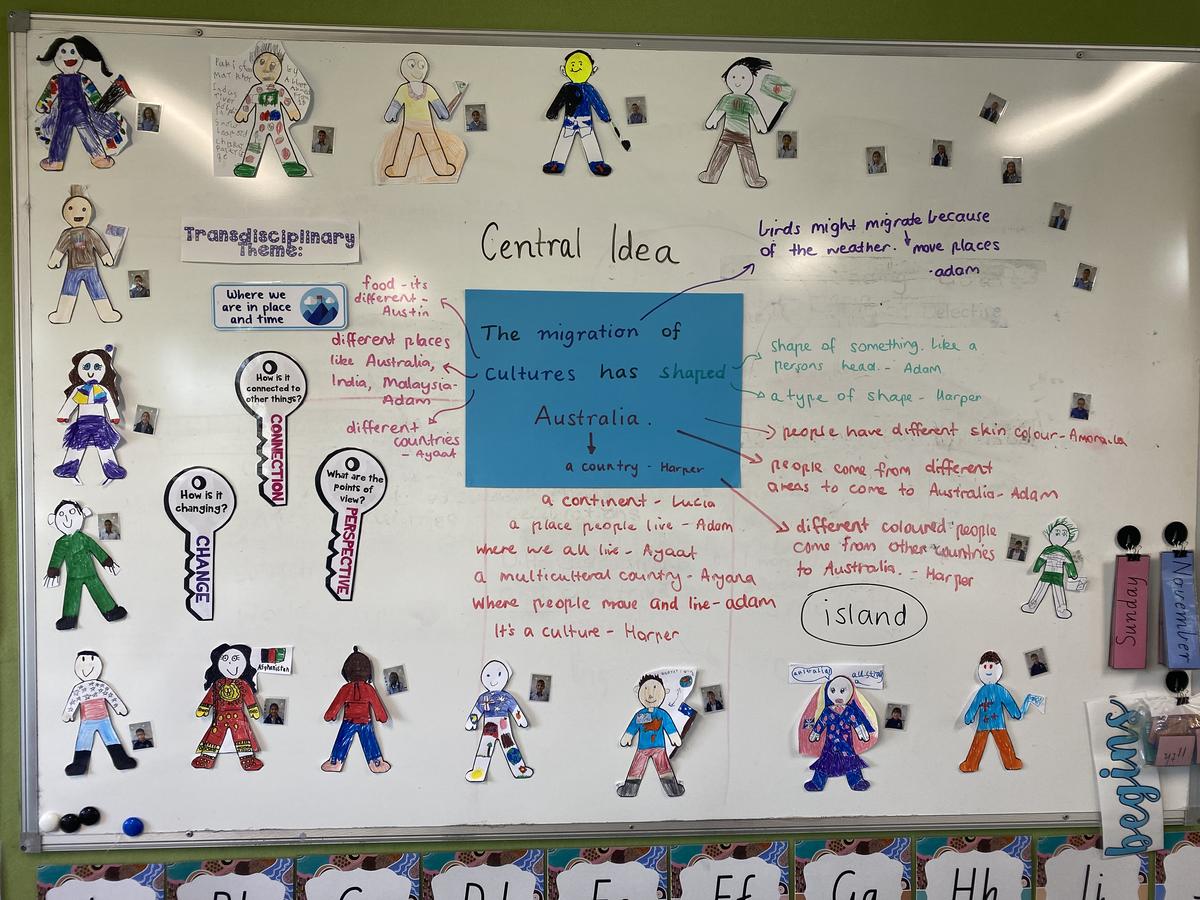 Transdisciplinary
Theme:
Where we
are in place
and time
Central Idea
The migration of
cultures has shaped
Australia.
a country - Harper
birds might migrate because
of the weather. move places
- adam
food - its
different -
Austin
different places
like Australia,
India, Malaysia-
Adam
different
countries
- Ayaat
shape of something. like a
persons head. - Adam
a type of shape - Harper
people come from different
areas to come to Australia - Adam
people have different skin colour -
different coloured people
come from other countries
to Australia. - Harper
a continent - Lucia
a place people live - Adam
where we all live - Ayaat
a multicultural country - Aryana
where people move and live - adam
It's a culture - Harper
island
How is it
connected to
other things?
CONNECTION
How is it
changing?
CHANGE
What are the
points of
view?
PERSPECTIVE
Afghanistan
Sunday
November
begins
Ff
Hh